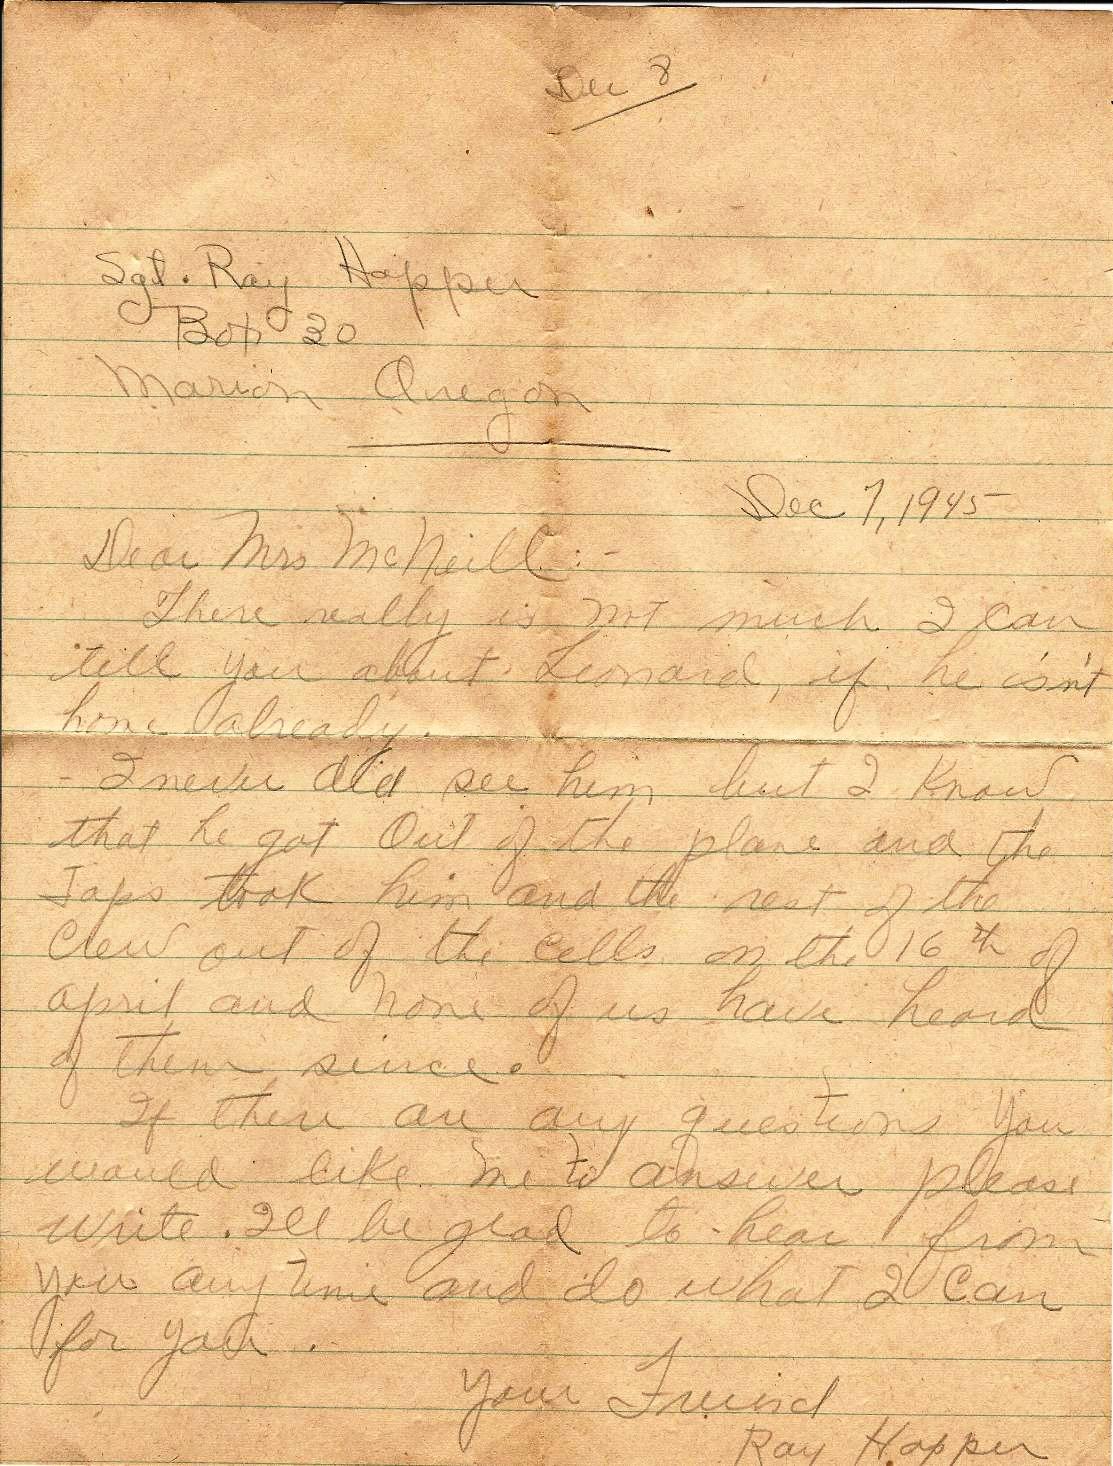 Dec 8
Sgt. Ray Hopper
Box 20
Marion Oregon
Dec 7, 1945
Dear Mrs McNeill :-
There really is not much I can
tell you about Leonard, if he isn't
home already.
- I never did see him but I know
that he got out of the plane and the
Japs took him and the rest of the
crew out of the cells on the 16th of
april and none of us have heard
of them since.
If there are any questions you
would like me to answer please
write. I'll be glad to hear from
you anytime and do what I can
for you.
Your Friend
Ray Hopper